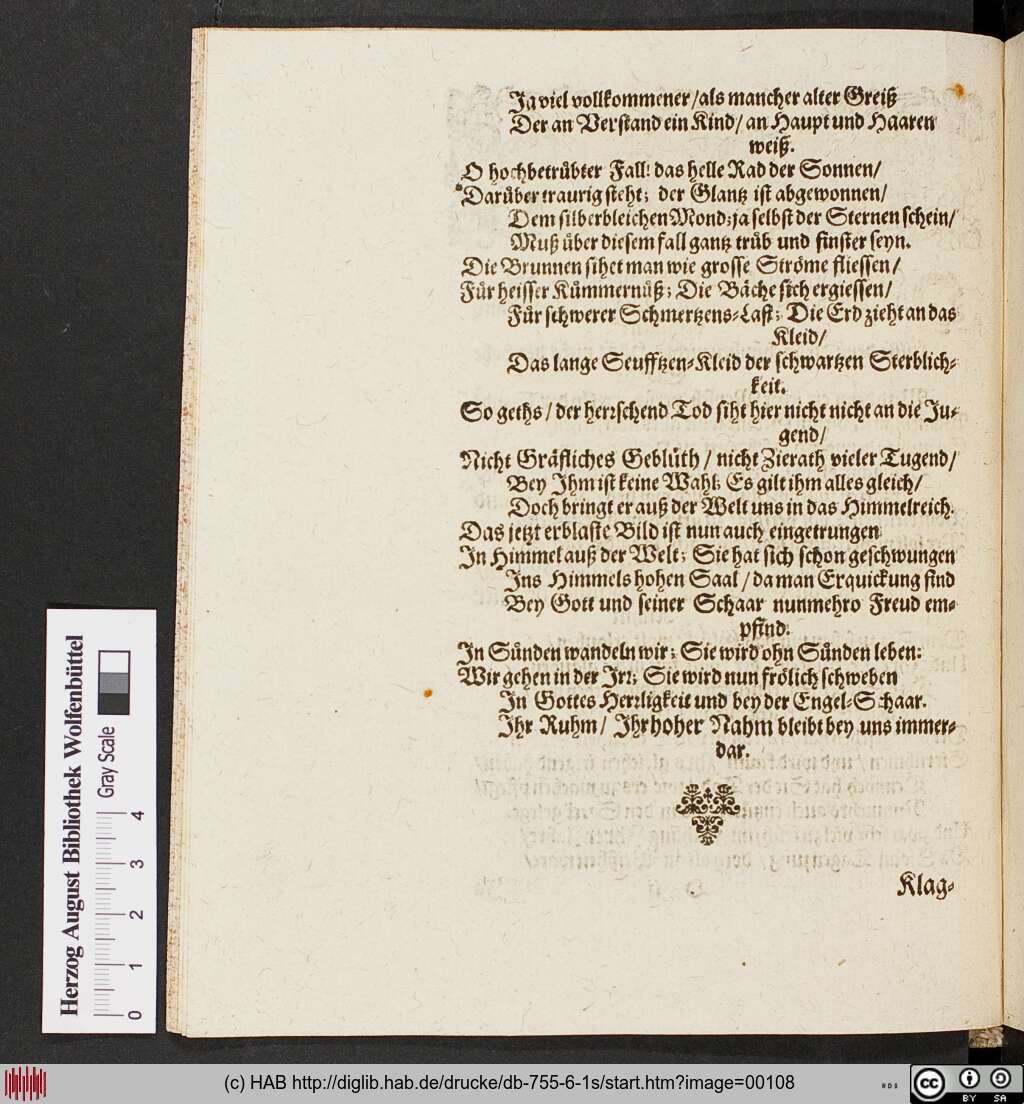 Ja viel vollkommener / als mancher alter Greiß
Der an Verstand ein Kind / an Haupt und Haaren
weiß.
O hochbetrübter Fall! das helle Rad der Sonnen /
Darüber traurig steht; der Glantz ist abgewonnen /
Dem silberbleichen Mond; ja selbst der Sternen schein /
Muß über diesem fall gantz trüb und finster seyn.
Die Brunnen sihet man wie grosse Ströme fliessen /
Für heisser Kümmernüß; Die Bäche sich ergiessen /
Für schwerer Schmertzens-Last; Die Erd zieht an das
Kleid /
Das lange Seufftzen-Kleid der schwartzen Sterblich-
keit.
So geths / der herrschend Tod siht hier nicht nicht an die Ju-
gend /
Nicht Gräfliches Geblüth / nicht Zierath vieler Tugend /
Bey Ihm ist keine Wahl; Es gilt ihm alles gleich /
Doch bringt er auß der Welt uns in das Himmelreich.
Das jetzt erblaste Bild ist nun auch eingetrungen
In Himmel auß der Welt; Sie hat sich schon geschwungen
Ins Himmels hohen Saal / da man Erquickung find
Bey Gott und seiner Schaar nunmehro Freud em-
pfind.
In Sünden wandeln wir; Sie wird ohn Sünden leben:
Wir gehen in der Irr; Sie wird nun frölich schweben
In Gottes Herrligkeit und bey der Engel-Schaar.
Ihr Ruhm / Ihr hoher Nahm bleibt bey uns immer-
dar.
Klag-
Herzog August Bibliothek Wolfenbüttel
Gray Scale
0 1 2 3 4
(c) HAB http://diglib.hab.de/drucke/db-755-6-1s/start.htm?image=00108
cc BY SA